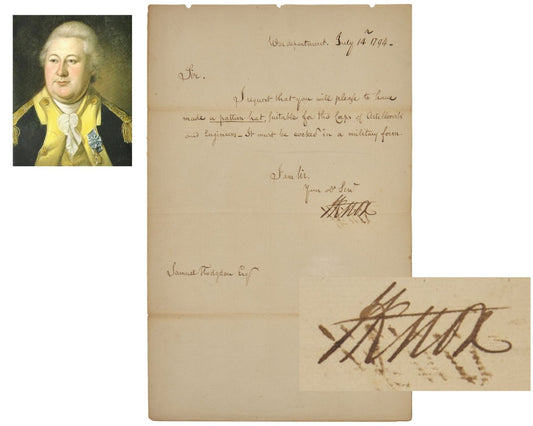 War department. July 14th 1794.
Sir.
I request that you will please to have
made a pattern hat, suitable for the Corps of Artillerists
and Engineers - It must be cocked in a military form.
I am Sir.
Your Ob Serv
HKnox
Samuel Hodgdon Esqr
HKnox